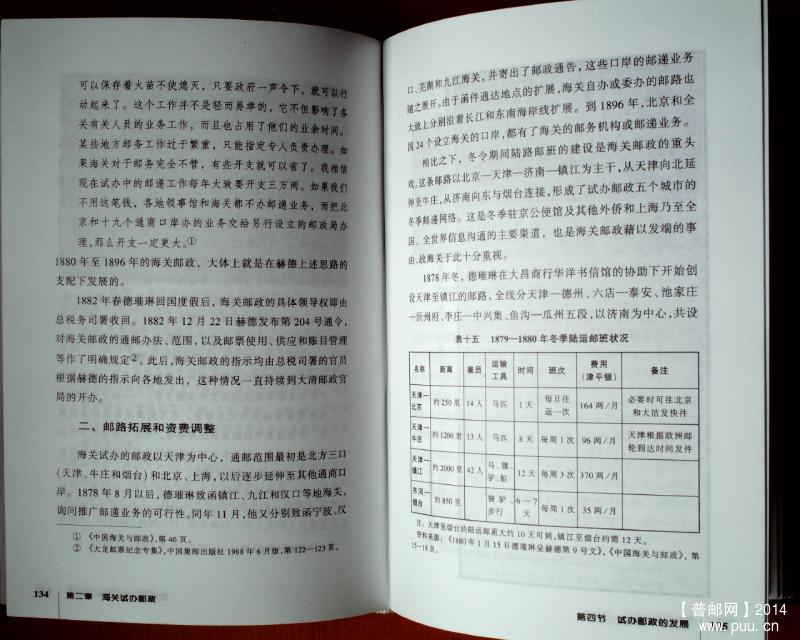 可以保存着火苗不使熄灭，只要政府一声令下，就可以行
动起来了。这个工作并不是轻而易举的，它不但影响了各
关有关人员的业务工作，而且也占用了他们的业余时间。
某些地方邮务工作过于繁重，只能指定专人负责办理。如
果海关对于邮务完全不管，有些开支就可以省了。我相信
现在试办中的邮递工作每年大致要开支三万两。如果我们
不用这笔钱，各地领事馆和海关都不办邮递业务，而把北
京和十九个通商口岸办的业务交给另行设立的邮政局办
理，那么开支一定更大。①
1880 年至 1896 年的海关邮政，大体上就是在赫德上述思路的
支配下发展的。
1882 年春德璀琳回国度假后，海关邮政的具体领导权即由
总税务司署收回。1882 年 12 月 22 日赫德发布第 204 号通令，
对邮政的通邮办法、范围，以及邮票使用、供应和账目管理
等作了明确规定②。此后，海关邮政的指示均由总税司署的官员
根据赫德的指示向各地发出，这种情况一直持续到大清邮政官
局的开办。
二、邮路拓展和资费调整
海关试办的邮政以天津为中心，通邮范围最初是北方三口
（天津、牛庄和烟台）和北京、上海，以后逐步延伸至其他通商口
岸。1878 年 8 月以后，德璀琳致函镇江、九江和汉口等地海关，
询问推广邮递业务的可行性。同年 11 月，他又分别致函宁波、汉
① 《中国海关与邮政》，第 46 页。
② 《大龙邮票纪念专集》，中国集邮出版社 1988 年 6 月版，第 122—123 页。
134 第二章 海关试办邮政
口、芜湖和九江海关，并寄出了邮政通告，这些口岸的邮递业务
随之展开。由于函件通达地点的扩展，海关自办或委办的邮路也
大致上分别沿着长江和东南海岸线扩展。到 1896 年，北京和全
国 24 个设立海关的口岸，都有了海关的邮务机构或邮递业务。
相比之下，冬令期间陆路邮班的建设是海关邮政的重头
戏。这条邮路以北京—天津—济南—镇江为主干，从天津向北延
伸至牛庄，从济南向东与烟台连接，形成了试办邮政五个城市的
冬季邮递网络。这是冬季驻京公使馆及其他外侨和上海乃至全
国、全世界信息沟通的主要渠道，也是海关邮政藉以发端的事
由，故海关于此十分重视。
1878 年冬，德璀琳在大昌商行华洋书信馆的协助下开始创
设天津至镇江的邮路，全线分天津—德州、六店—泰安、池家庄
—沂州府、李庄—中兴集、鱼沟—瓜州五段，以济南为中心，共设
表十五 1879—1880 年冬季陆运邮班状况
名称 距离 雇员 运输工具 时间 班次 费用（津平银） 备注
天津—北京 约 250 里 14 人 马匹 1 天 每日往返一次 164 两/月 必要时可往北京和大沽发快件
天津—牛庄 约 1200 里 13 人 马匹 8 天 每周 1 次 96 两/月 天津根据欧洲邮轮到达时间发件
天津—镇江 约 2000 里 42 人 马、骡、驴、船 12 天 每周 3 次 370 两/月
齐河—烟台 约 850 里 骑驴、步行 6—7 天 每周 1 次 35 两/月
注：天津至烟台的陆运邮班大约 10 天可到，镇江至烟台约需 12 天。
资料来源：《1880 年 1 月 15 日德璀琳呈赫德第 9 号文》，《中国海关与邮政》，第
15—18 页。
第四节 试办邮政的发展
【普邮网】2014
www.puu.cn